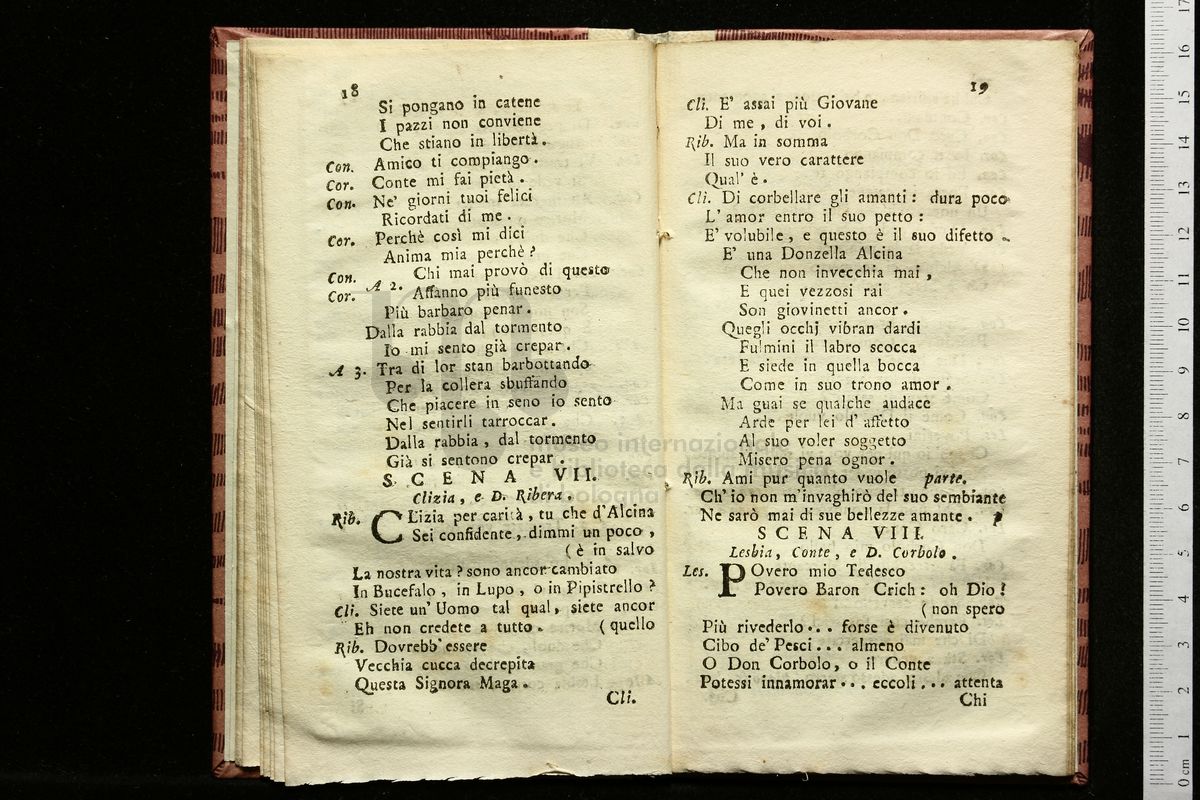 18
Si pongano in catene
I pazzi non conviene
Che stiano in libertà.
Con. Amico ti compiango.
Cor. Conte mi fai pietà.
Con. Ne' giorni tuoi felici
Ricordati di me.
Cor. Perchè così mi dici
Anima mia perchè?
Con. Chi mai provò di questo
Cor. A 2. Affanno più funesto
Più barbaro penar.
Dalla rabbia dal tormento
Io mi sento già crepar.
A 3. Tra di lor stan barbottando
Per la collera sbuffando
Che piacere in seno io sento
Nel sentirli tarroccar.
Dalla rabbia, dal tormento
Già si sentono crepar.
SCENA VII.
Clizia, e D. Ribera.
Rib. CLizia per carità, tu che d'Alcina
Sei confidente, dimmi un poco,
(è in salvo
La nostra vita? sono ancor cambiato
In Bucefalo, in Lupo, o in Pipistrello?
Cli. Siete un' Uomo tal qual, siete ancor
Eh non credete a tutto. (quello
Rib. Dovrebb' essere
Vecchia cucca decrepita
Questa Signora Maga.
Cli.
19
Cli. E' assai più Giovane
Di me, di voi.
Rib. Ma in somma
Il suo vero carattere
Qual' è.
Cli. Di corbellare gli amanti: dura poco
L' amor entro il suo petto:
E' volubile, e questo è il suo difetto.
E' una Donzella Alcina
Che non invecchia mai,
E quei vezzosi rai
Son giovinetti ancor.
Quegli occhj vibran dardi
Fulmini il labro scocca
E siede in quella bocca
Come in suo trono amor.
Ma guai se qualche audace
Arde per lei d' affetto
Al suo voler soggetto
Misero pena ognor.
Rib. Ami pur quanto vuole parte.
Ch' io non m'invaghirò del suo sembiante
Ne sarò mai di sue bellezze amante.
SCENA VIII.
Lesbia, Conte, e D. Corbolo.
Les. POvero mio Tedesco
Povero Baron Crich: oh Dio!
(non spero
Più rivederlo... forse è divenuto
Cibo de' Pesci... almeno
O Don Corbolo, o il Conte
Potessi innamorar... eccoli... attenta
Chi